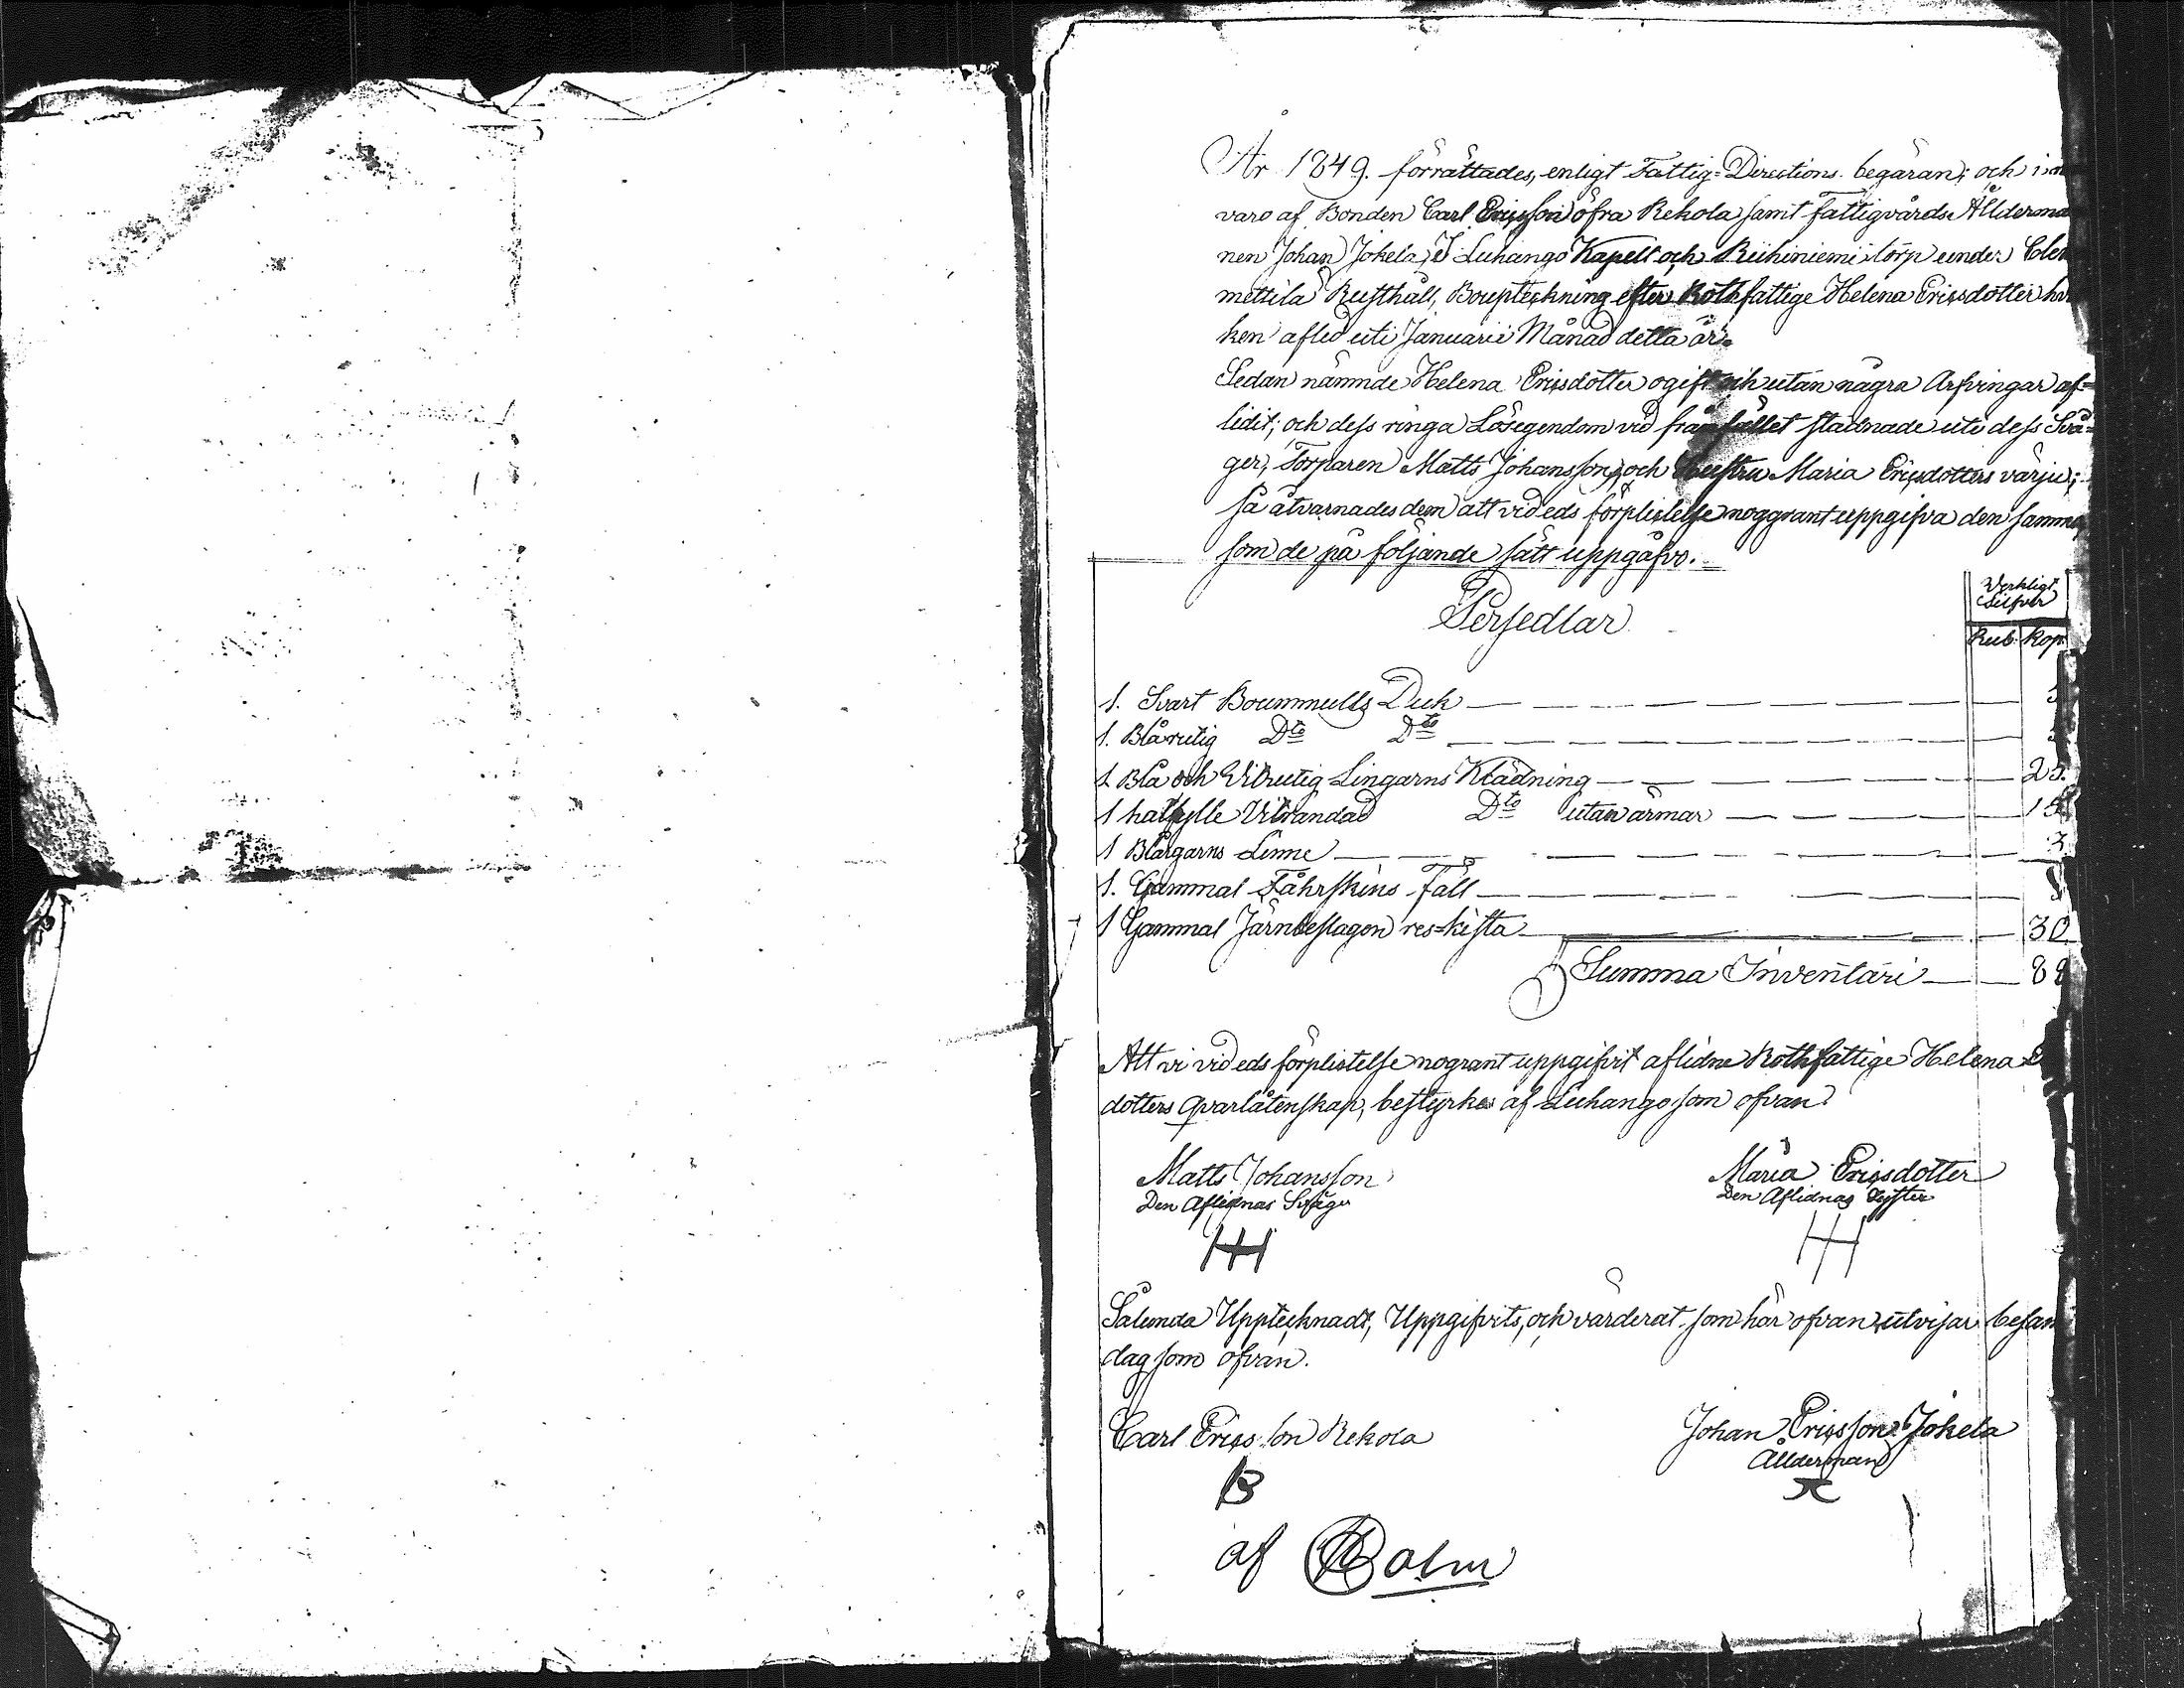 År 1849. förrättades, enligt Fattig-Directions begäran; och i
varo af Bonden Carl Ericsson öfra Rekola samt fattigvårds Åldermän
nen Johan Jokela, i Luhango Kapell och Riihiniemi torp under Clem
mettilä Rusthåll, Bouptekning efter Rothfattige Helena Ericsdotter hvil
ken afled uti Januarii Månad detta år.
Sedan nämnde Helena Ericsdotter ogift och utan några Arfvingar af=
lidit; och dess ringa Lösegendom vid frånfället stadnade uti dess Svå=
ger, Torparen Matts Johansson, och Hustru Maria Ericsdotters värju;
så åtvarnades dem att vid eds förplictelse noggrant uppgifva den samma
som de på följande sätt uppgåfvo.
Persedlar
Verkligt Silfver
Rub. Kop.
1. Svart Boummulls Duk
1. Blårutig Dto Dto
1. Blå och Vitrutig Lingarns Klädning 25.
1 halfylle Vitrandad Dto utan ärmar 15
1 Blårgarns Linne 3
1. Gammal Fåhrskins Fäll
1 Gammal Järnbeslagen res-kista 30
Summa Inventarii 88
Att vi vid eds förplictelse nogrant uppgifvit aflidne Rothfattige Helena
dotters qvarlåtenskap, bestyrkes af Luhango som ofvan
Matts Johansson Maria Ericsdotter
Den Aflidnas Svåger Den Aflidnas Syster
Sålunda Upptecknadt, Uppgifvits, och värderat som här ofvan utvisar
dag som ofvan.
Carl Ericsson Rekola Johan Ericsson Jokela
Ålderman
af Holm